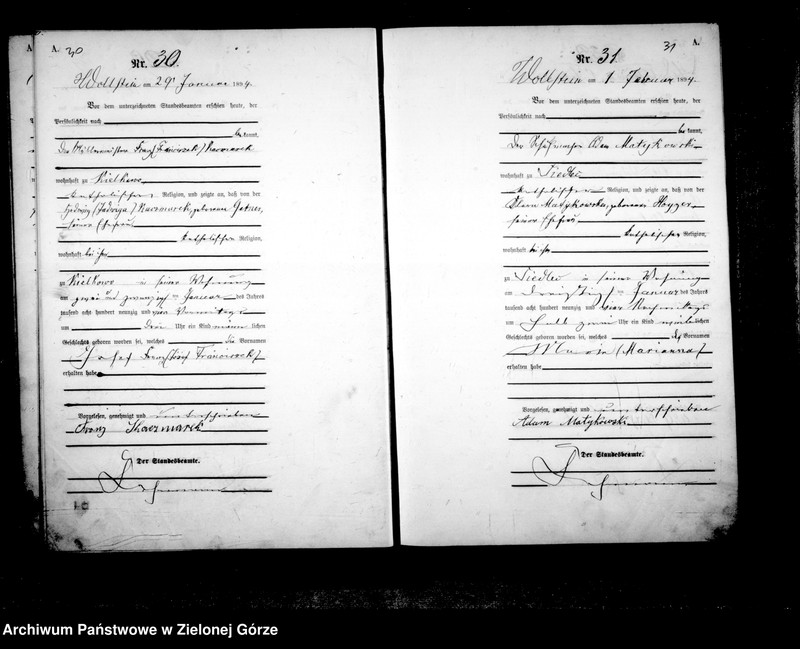 A. 30
Nr. 30.
Wollstein am 29 Januar 1894.
Vor dem unterzeichneten Standesbeamten erschien heute, der
Persönlichkeit nach
be kannt,
Franz /Franciszek/ Kaczmarek
wohnhaft zu Kielkowo
katholischer Religion, und zeigte an, daß von der
Hedwig /Jadwiga/ Kaczmarek, geborene
seiner Ehefrau
katholischer Religion,
wohnhaft bei ihm
zu Kielkowo in seiner Wohnung
am zwei und zwanzigsten Januar des Jahres
tausend acht hundert neunzig und vier Vormittags
um drei Uhr ein Kind männ lichen
Geschlechts geboren worden sei, welches die Vornamen
Josef Franz /Józef Franciszek/
erhalten habe
Vorgelesen, genehmigt und unterschrieben
Franz Kaczmarek
Der Standesbeamte.
31 A.
Nr. 31.
Wollstein am 1 Februar 1894.
Vor dem unterzeichneten Standesbeamten erschien heute, der
Persönlichkeit nach
be kannt,
Der Schuhmacher Adam Matykowski
wohnhaft zu Siedlec
katholischer Religion, und zeigte an, daß von der
Matykowska, geborene
seiner Ehefrau
katholischer Religion,
wohnhaft bei ihm
zu Siedlec in seiner Wohnung
am dreißigsten Januar des Jahres
tausend acht hundert neunzig und vier Nachmittags
um halb zwei Uhr ein Kind weiblichen
Geschlechts geboren worden sei, welches die Vornamen
Maria /Marianna/
erhalten habe
Vorgelesen, genehmigt und unterschrieben
Adam Matykowski
Der Standesbeamte.
Archiwum Państwowe w Zielonej Górze